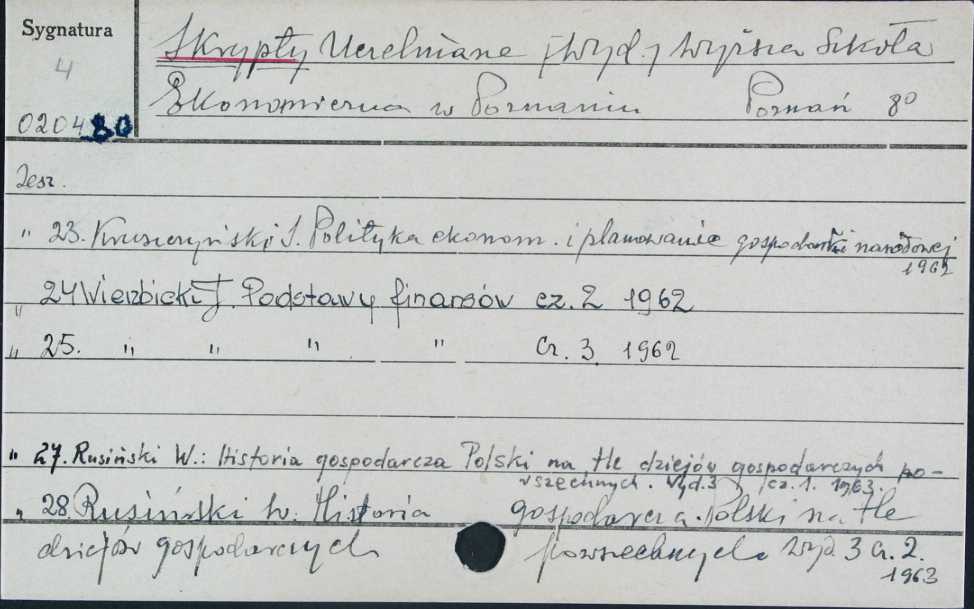 Sygnatura
4
020480
Skrypty Uczelniane /Wyd./ Wyższa Szkoła
Ekonomiczna w Poznaniu Poznań 8º
Zesz.
" 23. Kruszczyński S. Polityka ekonom. i planowanie gospodarki narodowej
1962
" 24 Wierzbicki J. Podstawy finansów cz. 2 1962
" 25. " " " " cz. 3 1962
" 27. Rusiński W.: Historia gospodarcza Polski na tle dziejów gospodarczych po-
wszechnych. Wyd. 3 cz. 1. 1963.
" 28. Rusiński W. Historia gospodarcza Polski na tle
dziejów gospodarczych powszechnych. Wyd 3 cz. 2.
1963